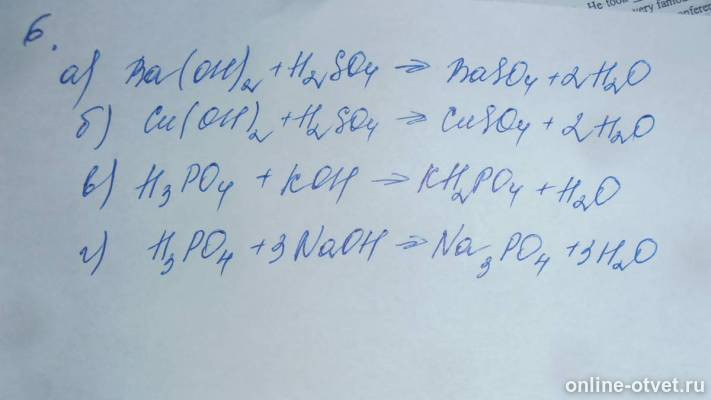 He took
very famou
onferen
6.
а) Ba(OH)₂ + H₂SO₄ → BaSO₄ + 2H₂O
б) Cu(OH)₂ + H₂SO₄ → CuSO₄ + 2H₂O
в) H₃PO₄ + KOH → KH₂PO₄ + H₂O
г) H₃PO₄ + 3NaOH → Na₃PO₄ + 3H₂O
online-otvet.ru